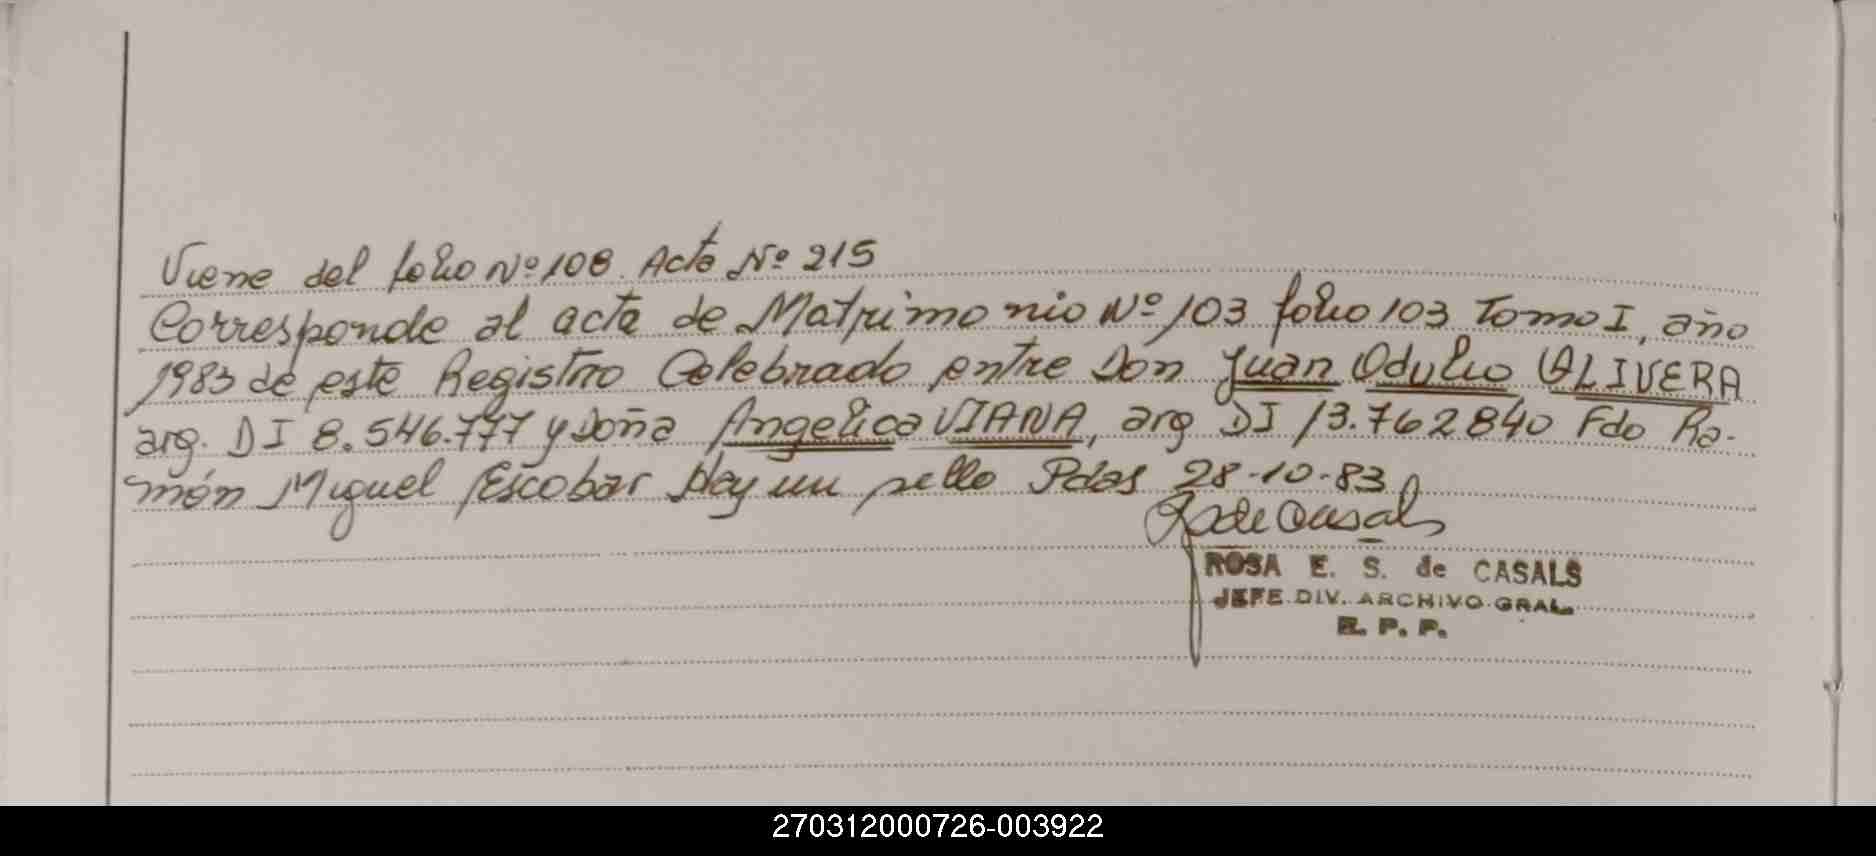 Viene del folio Nº 108. Acta Nº 215
Corresponde al acta de Matrimonio Nº 103 folio 103 Tomo I, año
1983 de este Registro Celebrado entre Don Juan Odulio OLIVERA
arg. DI 8.546.777 y Doña Angelica VIANA, arg DI 13.762840 Fdo Ra-
món Miguel Escobar Hay un sello Pdas 28-10-83
R de Casals
ROSA E. S. de CASALS
JEFE DIV. ARCHIVO GRAL.
R. P. P.
270312000726-003922